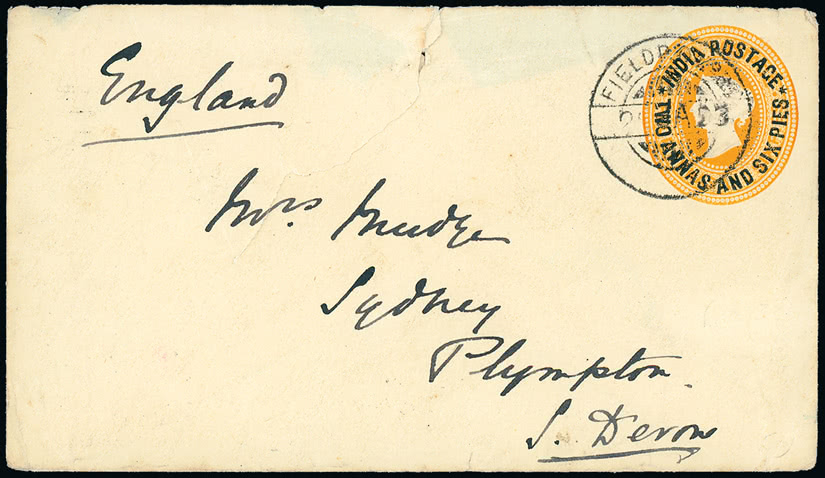 England
*INDIA POSTAGE*
TWO ANNAS AND SIX PIES
FIELD
Mrs Mudge
Sydney
Plympton
S. Devon